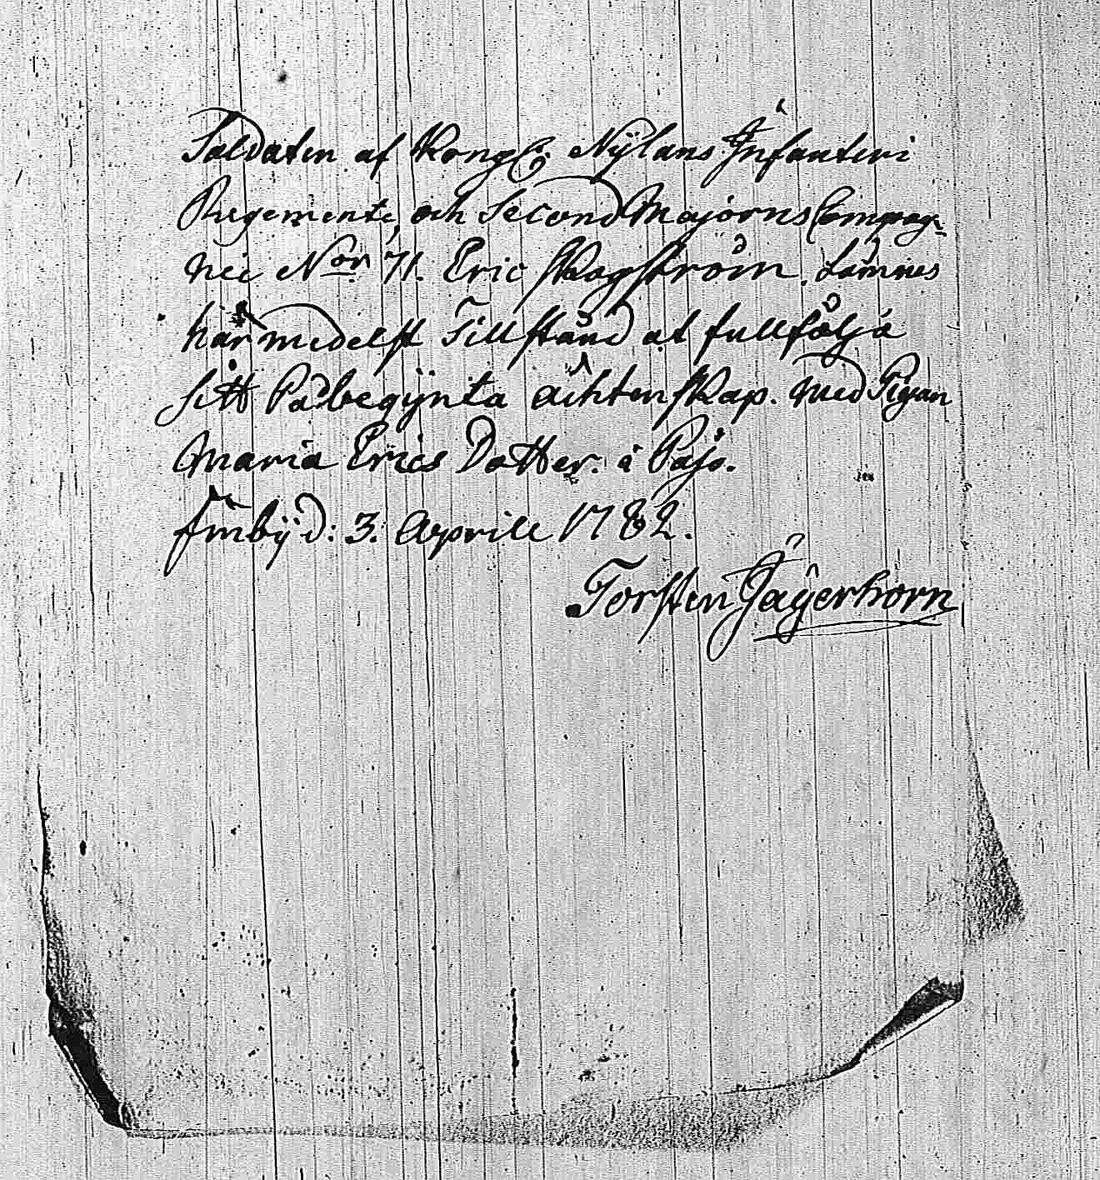 Soldaten af Kongl: Nÿlans Infanteri
Regemente, och Second Majorns Compag-
nie No: 71. Eric Skogström. Lämnes
härmedelst Tillstånd at fullfölja
sitt Påbegÿnta ächtenskap. med Pigan
Maria Erics Dotter. i Påjo.
Finbÿ d: 3. Aprill 1782.
Torsten Jägerhorn